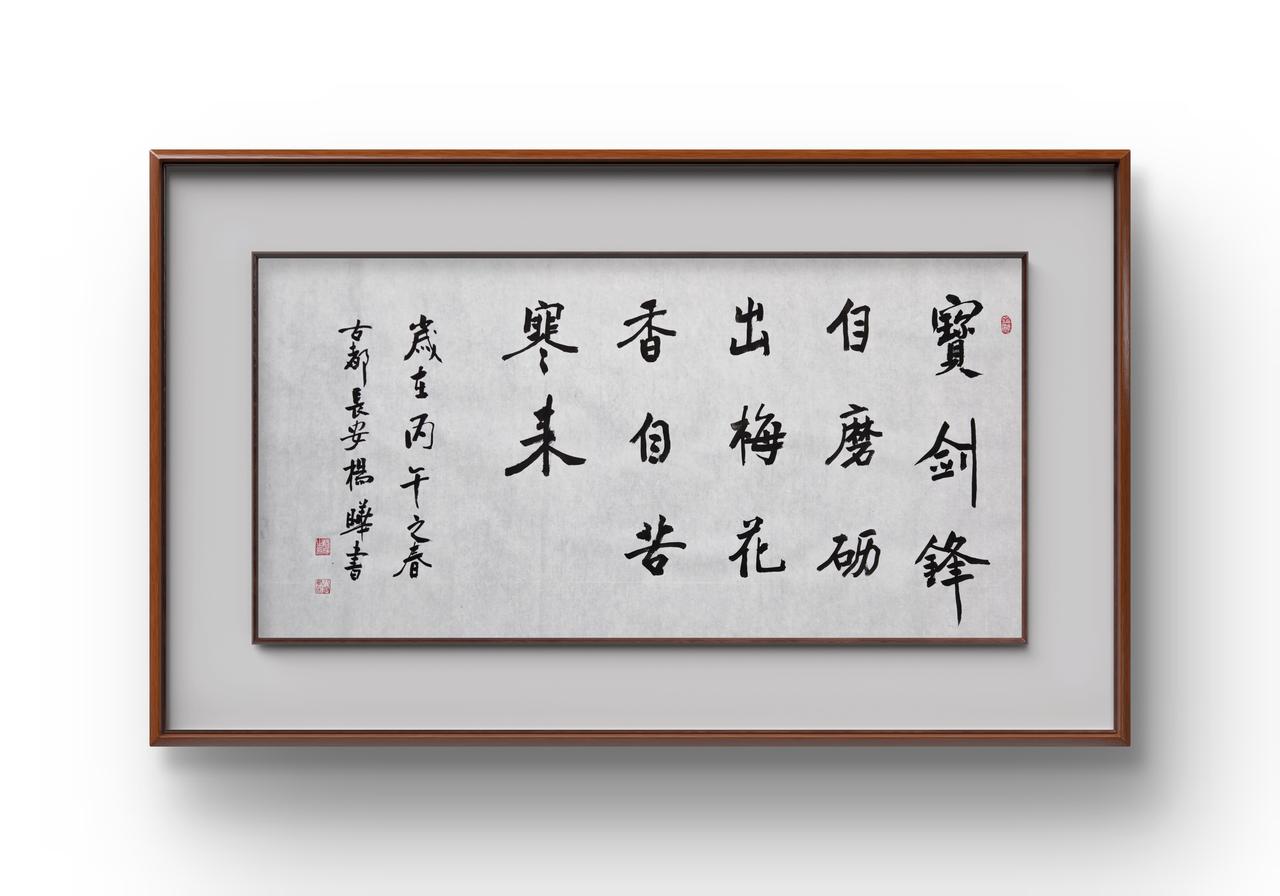 寶剑鋒
自磨砺
出梅花
香自苦
寒来
歲在丙午之春
古都長安楊曄書